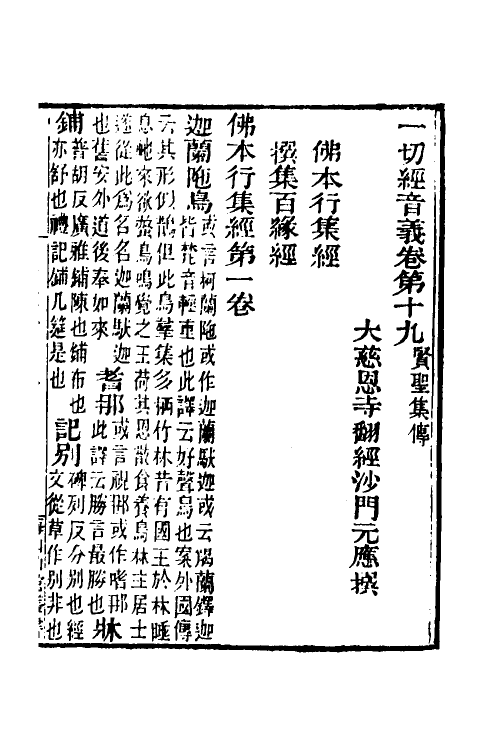 一切經音義卷第十九 賢聖集傳
大慈恩寺翻經沙門元應撰
佛本行集經
撰集百緣經
佛本行集經第一卷
迦蘭陁鳥 或言柯蘭陁或作迦蘭馱迦或云羯蘭鐸迦
皆梵音輕重也此譯云好聲鳥也案外國傳
云其形似鵲但此鳥羣集多栖竹林昔有國王於林睡
息虵來欲螫鳥鳴覺之王荷其恩散食養鳥林主居士
遂從此爲名名迦蘭馱迦
也舊安外道後奉如來 耆那 或言視那或作嗜那
此譯云勝言最勝也 牀
鋪 普胡反廣雅鋪陳也鋪布也
亦舒也禮記鋪几筵是也 記別 碑列反分別也經
文從草作別非也